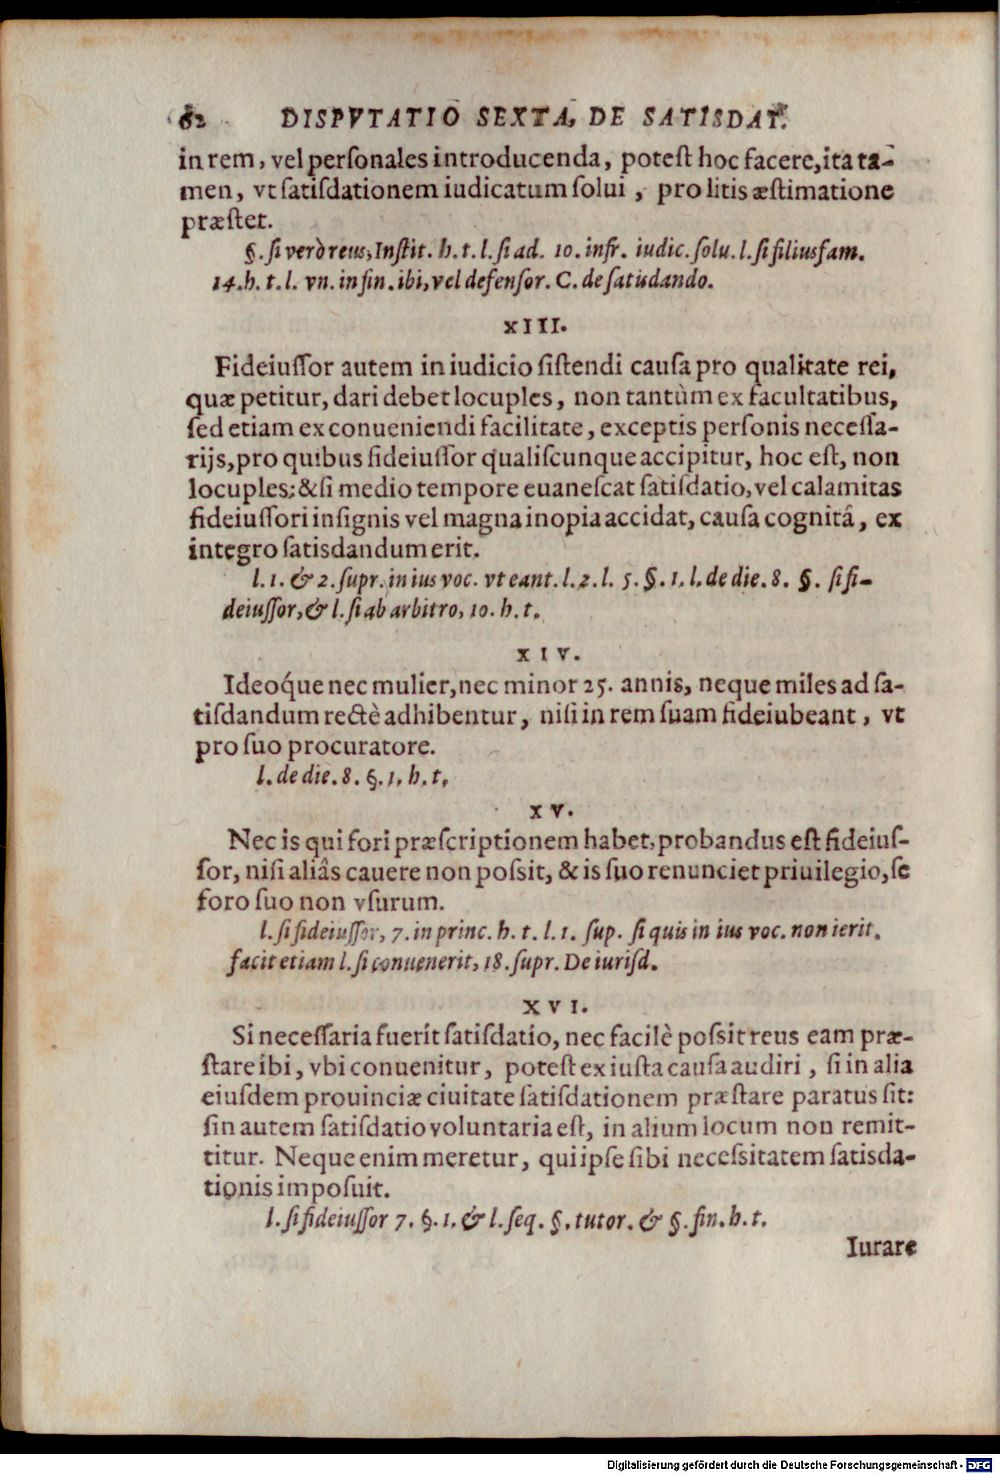 62 DISPVTATIO SEXTA, DE SATISDAT.
in rem, vel perſonales introducenda, poteſt hoc facere, ita ta-
men, vt ſatiſdationem iudicatum ſolui, pro litis æſtimatione
præſtet.
§. ſi verò reus, Inſtit. h. t. l. ſi ad. 10. infr. iudic. ſolu. l. ſi filiusfam.
14. h. t. l. vn. in fin. ibi, vel defenſor. C. de ſatisdando.
XIII.
Fideiuſſor autem in iudicio ſiſtendi cauſa pro qualitate rei,
quæ petitur, dari debet locuples, non tantùm ex facultatibus,
ſed etiam ex conueniendi facilitate, exceptis perſonis neceſſa-
rijs, pro quibus fideiuſſor qualiſcunque accipitur, hoc eſt, non
locuples; & ſi medio tempore euaneſcat ſatiſdatio, vel calamitas
fideiuſſori inſignis vel magna inopia accidat, cauſa cognitâ, ex
integro ſatisdandum erit.
l. 1. & 2. ſupr. in ius voc. vt eant. l. 2. l. 5. §. 1. l. de die. 8. §. ſi fi-
deiuſſor, & l. ſi ab arbitro, 10. h. t.
XIV.
Ideoq́ue nec mulier, nec minor 25. annis, neque miles ad ſa-
tiſdandum rectè adhibentur, niſi in rem ſuam fideiubeant, vt
pro ſuo procuratore.
l. de die. 8. §. 1. h. t.
XV.
Nec is qui fori præſcriptionem habet, probandus eſt fideiuſ-
ſor, niſi aliâs cauere non poſsit, & is ſuo renunciet priuilegio, ſe
foro ſuo non vſurum.
l. ſi fideiuſſor, 7. in princ. h. t. l. 1. ſup. ſi quis in ius voc. non ierit.
facit etiam l. ſi conuenerit, 18. ſupr. De iuriſd.
XVI.
Si neceſſaria fuerit ſatiſdatio, nec facilè poſsit reus eam præ-
ſtare ibi, vbi conuenitur, poteſt ex iuſta cauſa audiri, ſi in alia
eiuſdem prouinciæ ciuitate ſatiſdationem præſtare paratus ſit:
ſin autem ſatiſdatio voluntaria eſt, in alium locum non remit-
titur. Neque enim meretur, qui ipſe ſibi neceſsitatem ſatisda-
tionis impoſuit.
l. ſi fideiuſſor 7. §. 1. & l. ſeq. §. tutor. & §. fin. h. t.
Iurare
Digitalisierung gefördert durch die Deutsche Forschungsgemeinschaft - DFG